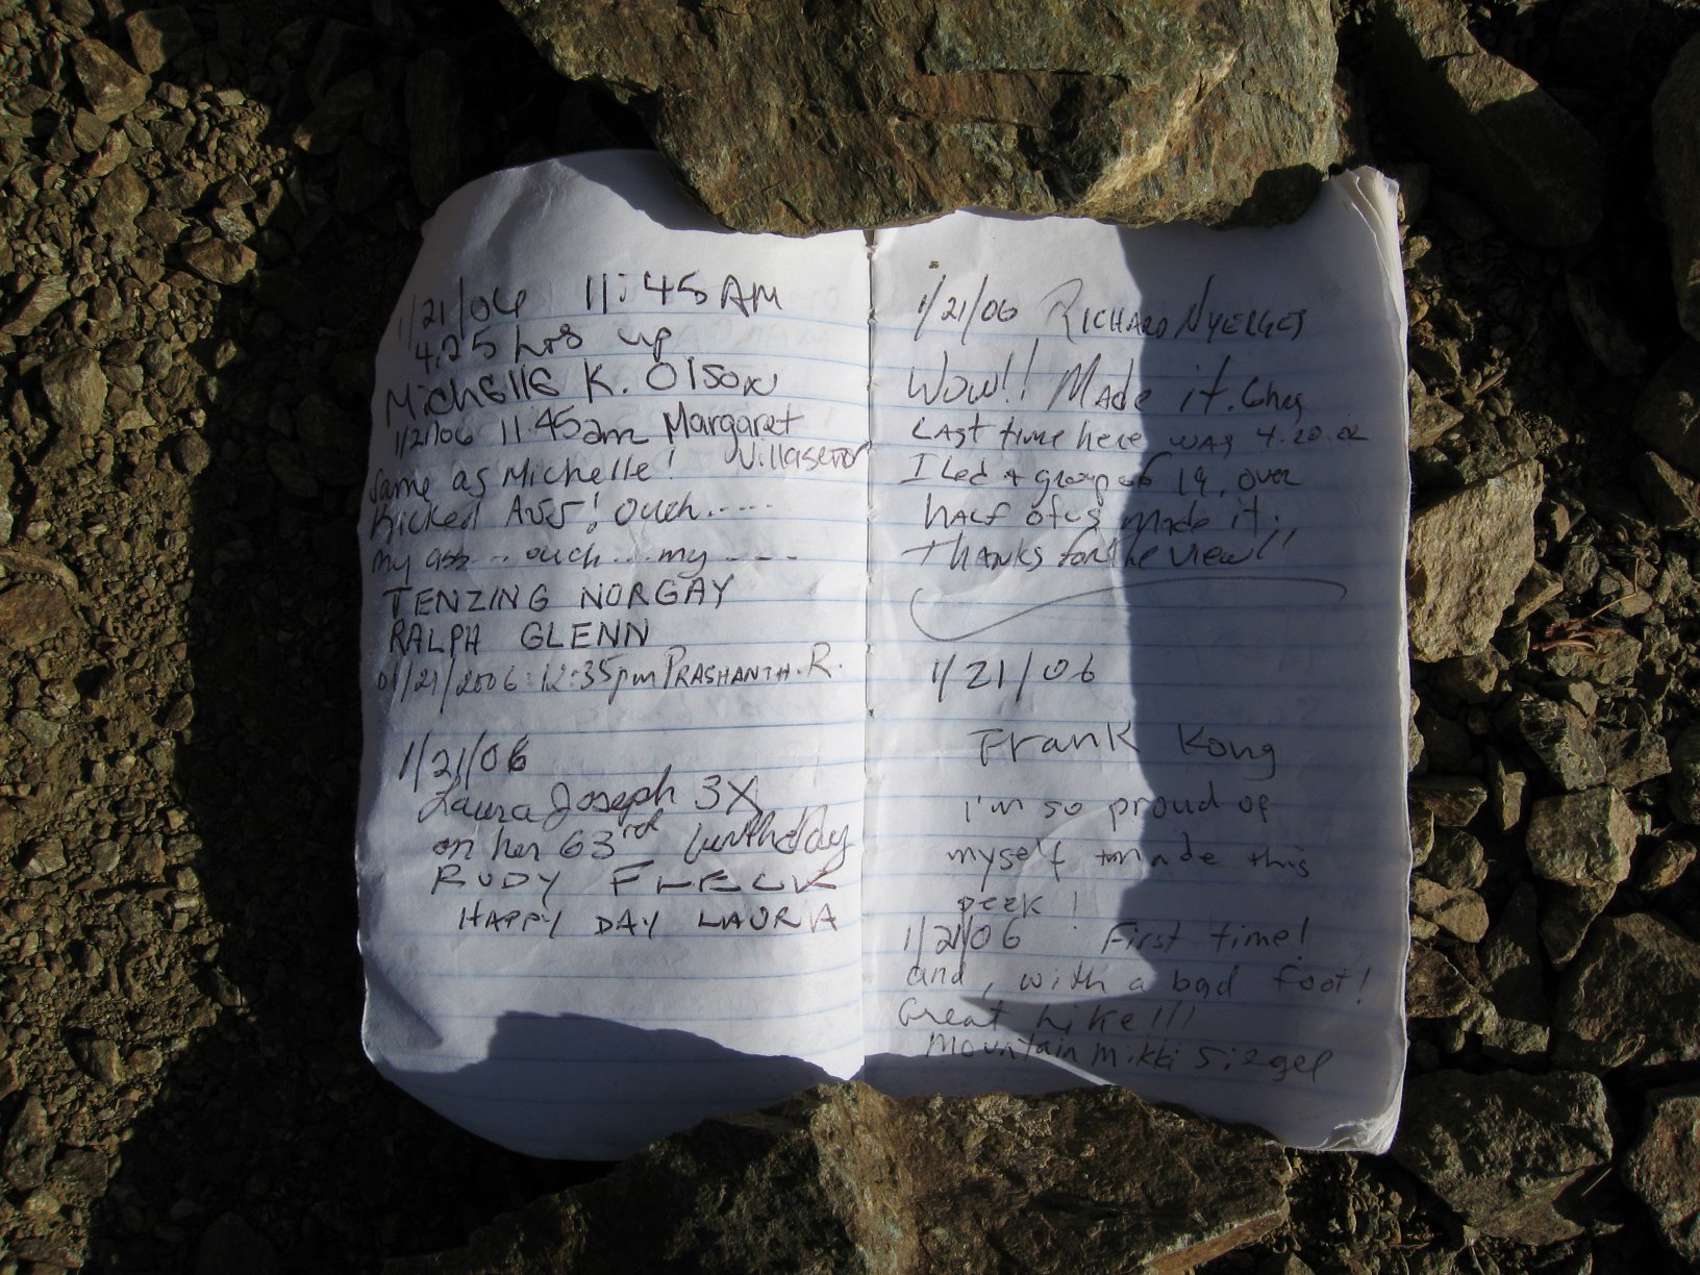 1/21/06 11:45 AM
4.25 hrs up
Michelle K. Olson
1/21/06 11:45am Margaret
Villasenor
Same as Michelle!
Kicked Ass! Ouch.....
my ass... ouch... my ----
TENZING NORGAY
RALPH GLENN
01/21/2006: 12:35pm PRASHANTH. R.
1/21/06
Laura Joseph 3X
on her 63rd birthday
RUDY FLECK
HAPPY DAY LAURA
1/21/06 RICHARD NYERGES
Wow!! Made it.
Last time here was 4.20.02
I led a group of 19, over
half of us made it.
Thanks for the view!!
1/21/06
Frank Kong
i'm so proud of
myself made this
peek!
1/21/06 First time!
and, with a bad foot!
Great hike!!!
Mountain Mikki Siegel